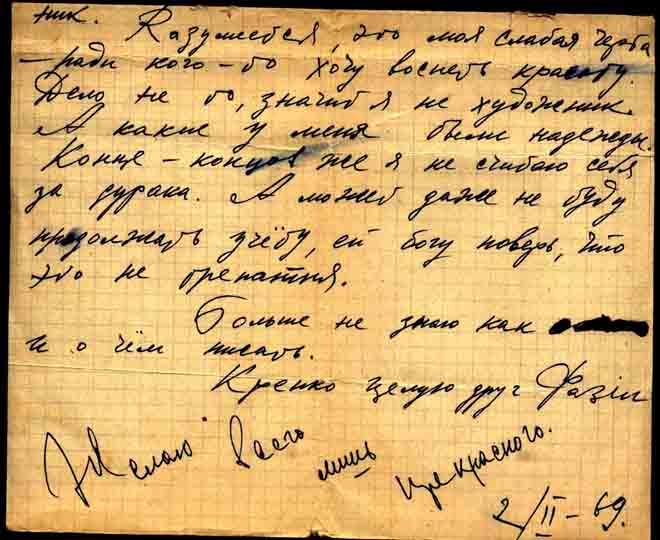 ник. Разумеется, это моя слабая черта
– ради кого-то хочу воспеть красоту.
Дело не то, значит я не художник.
А какие у меня были надежды.
Конце – концов же я не считаю себя
за дурака. А может даже не буду
продолжать учёбу, ей богу поверь, что
это не трепатня.
Больше не знаю как
и о чём писать.
Крепко целую друг Фазіл
Желаю всего лишь прекрасного.
2/II – 69.